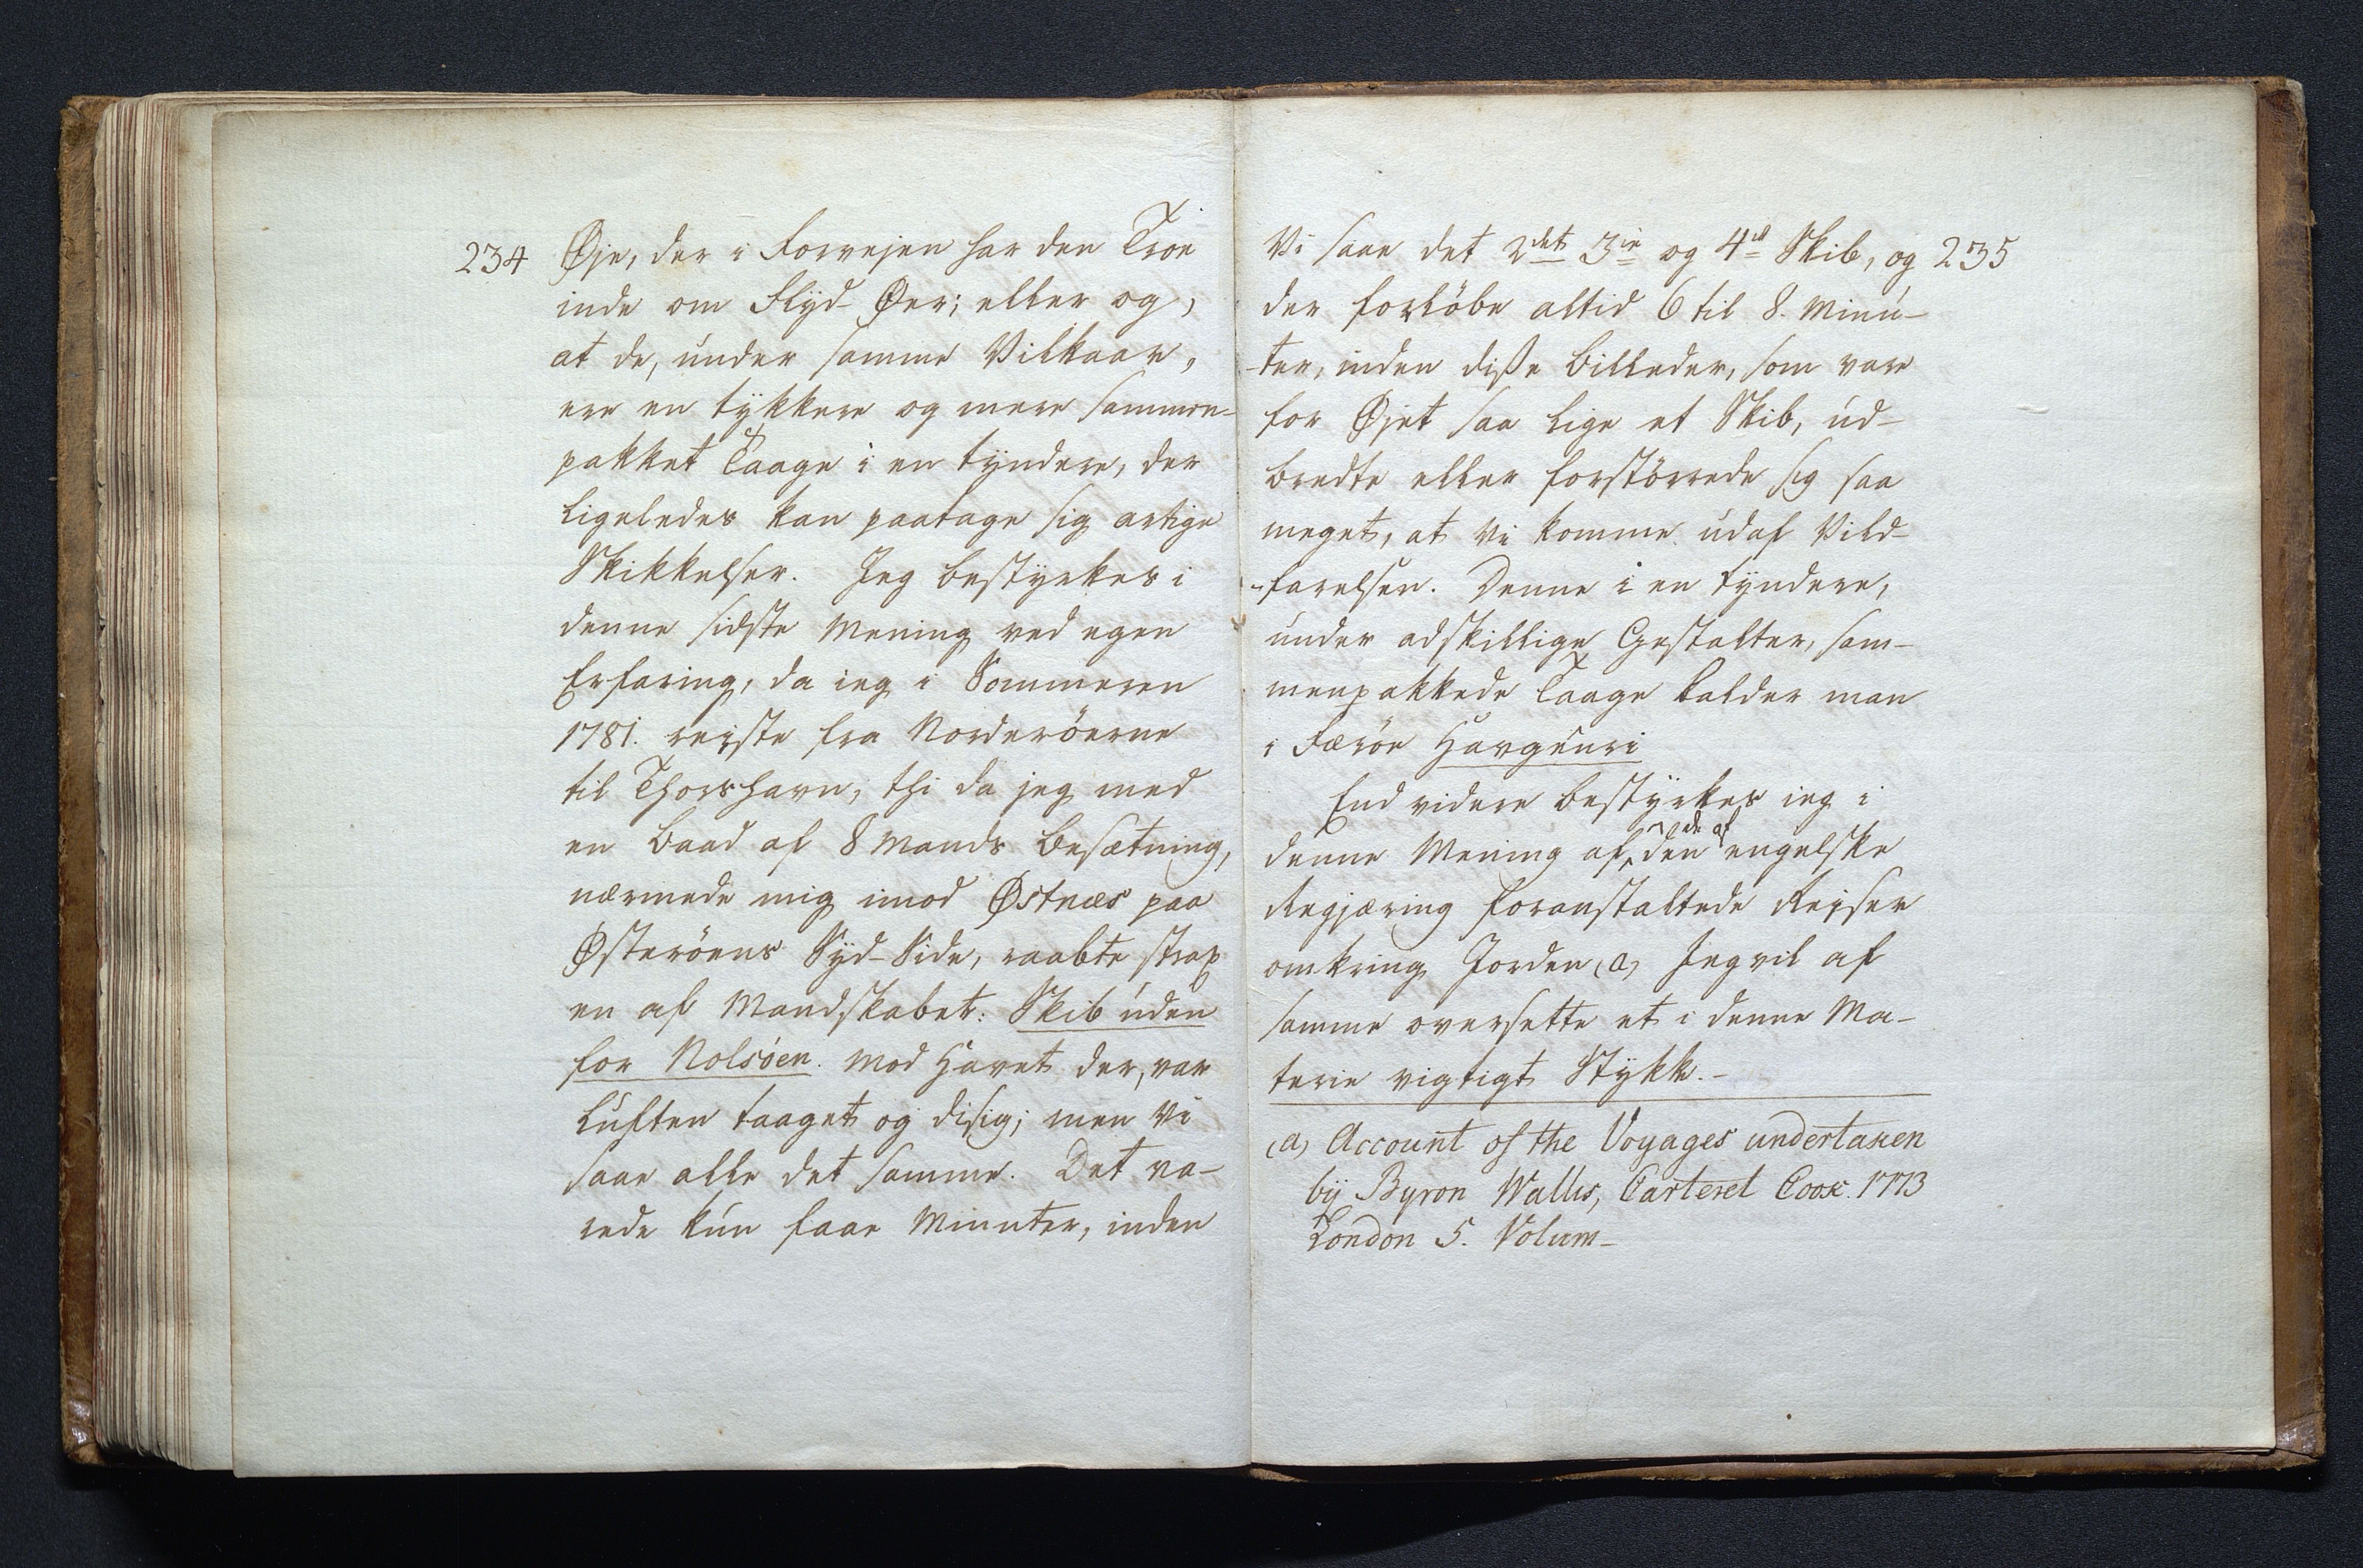 234
Øje, der i Forvejen har den Troe
inde om Flyd-Øer; eller og,
at de, under samme Vilkaar,
ere en tykkere og mere sammen-
pakket Taage i en tyndere, der
ligeledes kan paatage sig artige
Skikkelser. Jeg bestyrkes i
denne sidste Mening ved egen
Erfaring, da ieg i Sommeren
1781. rejste fra Norderöerne
til Thorshavn; thi da jeg med
en Baad af 8 Mands Besætning,
nærmede mig imod Østnæs paa
Østeröens Syd-Side, raabte strax
en af Mandskabet: Skib uden
for Nolsöen. Mod Havet der, var
Luften taaget og disig; men Vi
saae alle det samme. Det va-
rede kun faae Minuter, inden
235
Vi saae det 2det 3ie og 4de Skib, og
der forlöbe altid 6 til 8. Minu-
-ter, inden diße Billeder, som vare
for Øjet saa lige et Skib, ud-
bredte eller forstörrede sig saa
meget, at Vi komme udaf Vild-
-farelsen. Denne i en tyndere,
under adskillige Gestalter, sam-
menpakkede Taage kalder man
i Færöe Havgúuri
End videre bestyrkes ieg i
de af
denne Mening af den engelske
Regjæring foranstaltede Rejser
omkring Jorden (a) Jeg vil af
samme oversette et i denne Ma-
terie vigtigt Stykke.-
(a) Account of the Voyages undertaken
by Byron Wallis, Carteret Cook. 1773
London 5. Volum-